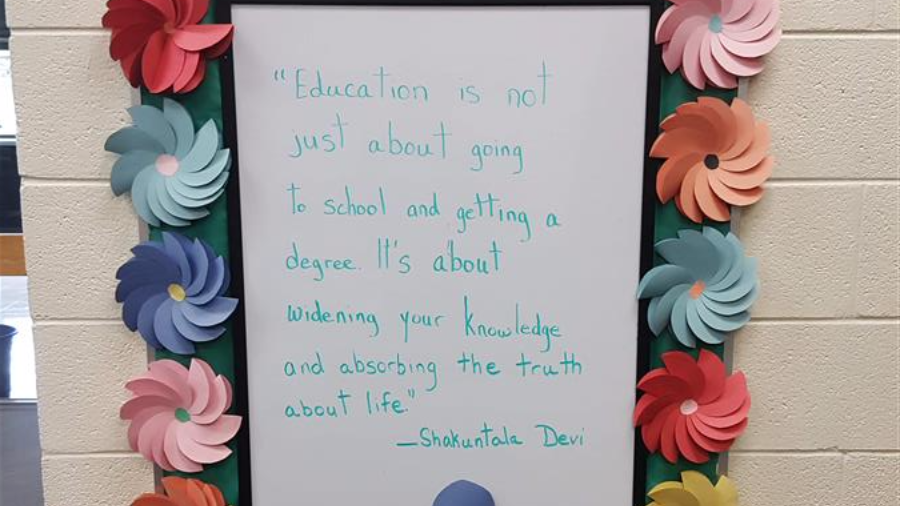 "Education is not
just about going
to school and getting a
degree. It's about
widening your knowledge
and absorbing the truth
about life."
—Shakuntala Devi